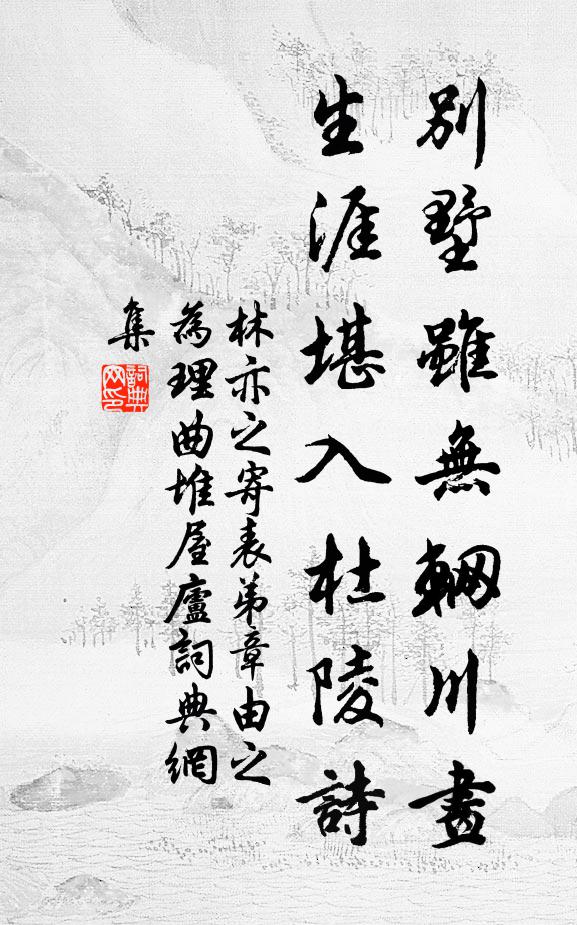 別墅雖無輞川畫
生涯堪入杜陵詩
林亦之寄表弟章由之
為理曲堆屋廬詞典網
集
詞典
网印